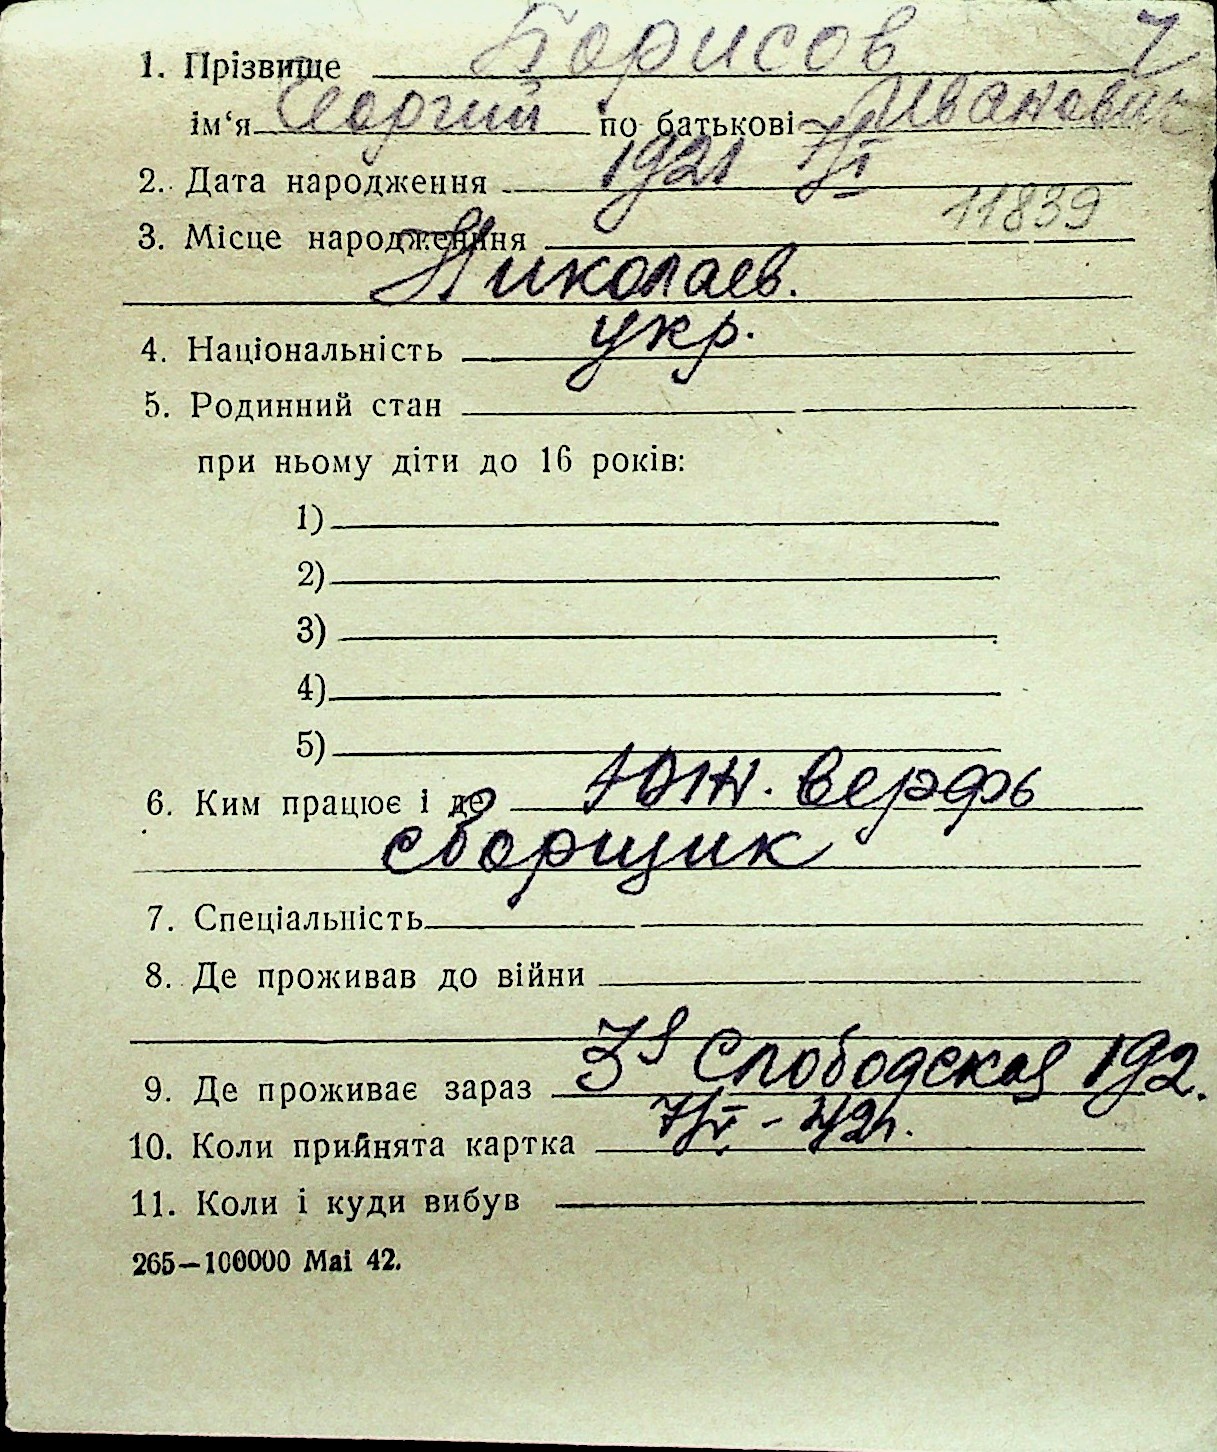 1. Прізвище Борисов 7
ім‘я Георгий по батькові Иванович
2. Дата народження 1921 7/I
11839
3. Місце народження
Николаев.
4. Національність укр.
5. Родинний стан
при ньому діти до 16 років:
1)
2)
3)
4)
5)
6. Ким працює і де Юж. верфь
сборщик
7. Спеціальність
8. Де проживав до війни
9. Де проживає зараз 3я Слободская 192.
10. Коли прийнята картка
11. Коли і куди вибув
265—100000 Mai 42.